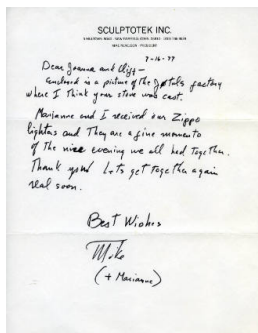 SCULPTOTEK INC.
7-16-77
Dear Joanna and Cliff-
Enclosed is a picture of the factory
where I think your stove was cast.
Marianne and I received our Zippo
lighters and They are a fine momento
of the nice evening we all had Together.
Thank you! Lets get Together again
real soon.
Best Wishes
Mike
(+ Marianne)